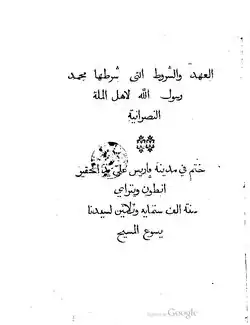 العهد والشروط التى شرطها محمد
رسول الله لاهل الملة
النصرانية
ختم في مدينة باريس على يد الحقير
انطون ويتراي
سنة الف ستمايه وثلاثين لسيدنا
يسوع المسيح
Google